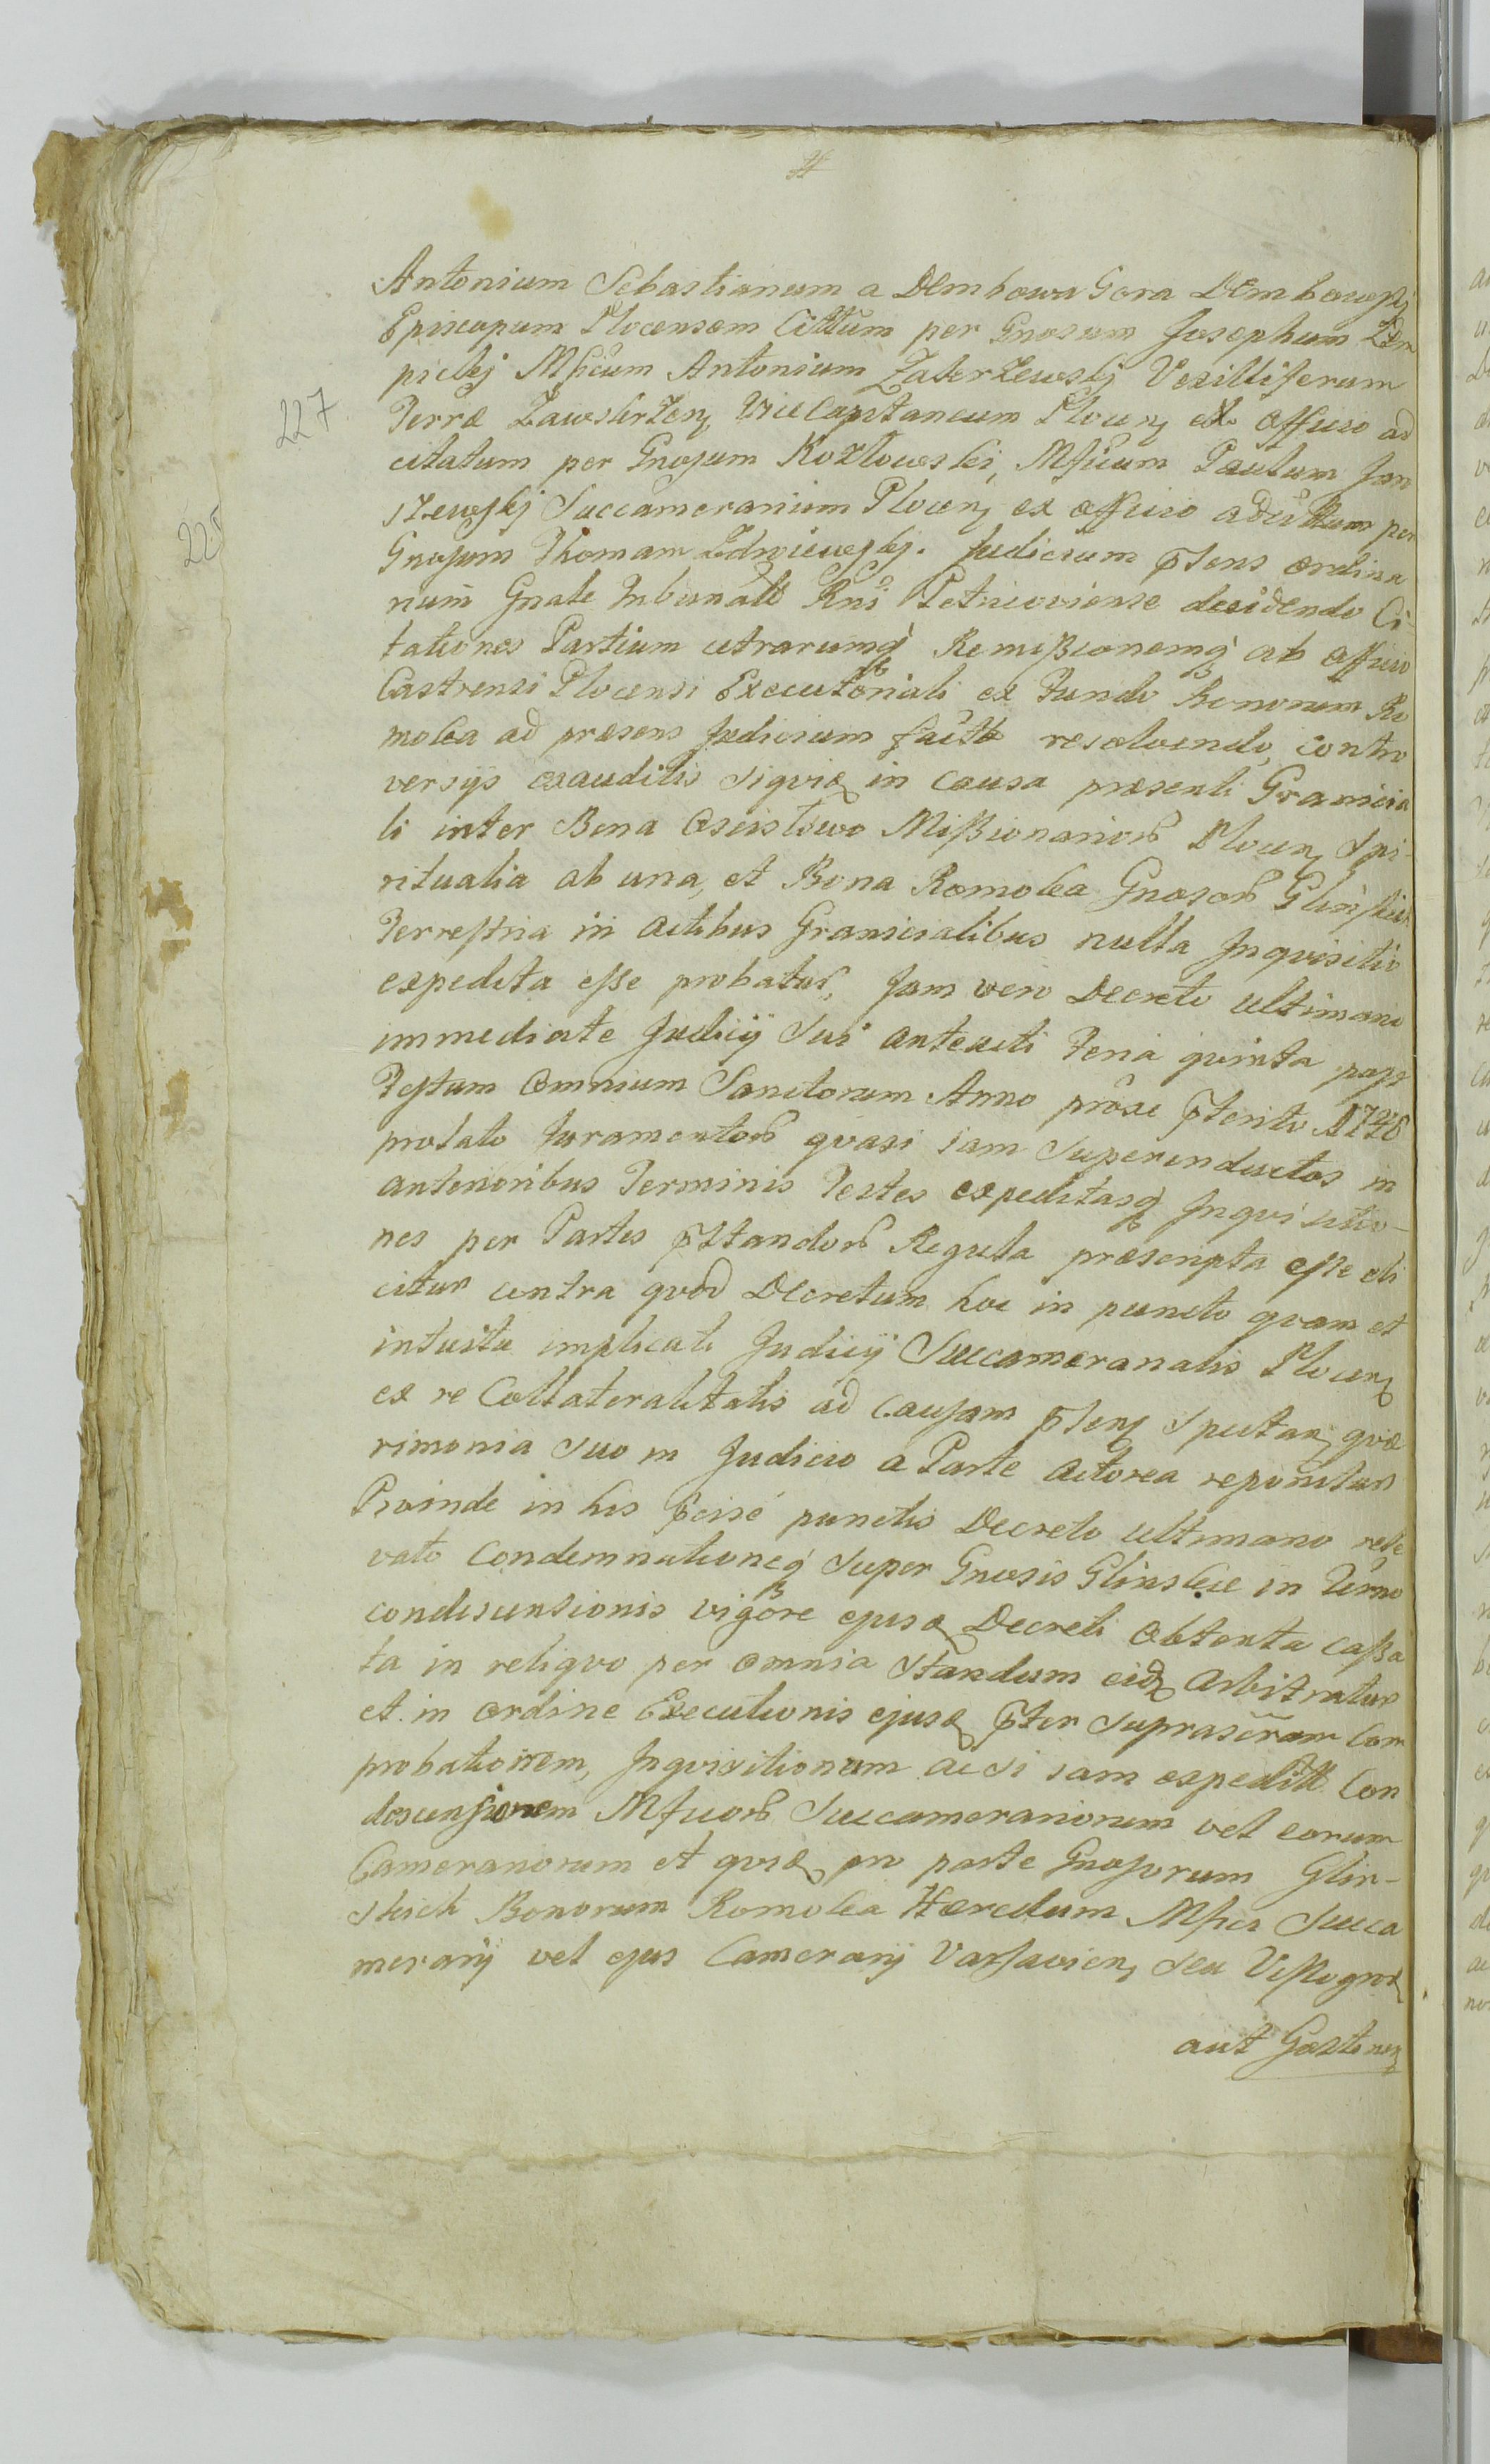 Antonium Sebastianum a Dembowa Gora Dembowskj
Episcopum Plocensem Cittum per Gnosum Josephum
pickj Mficum Antonium Zakrzewskj Vexilliferum
Terræ Zawskrzeng ViceCapitaneum Plocen ex Officio ad
227
citatum per Gnosum Kozlowski, Mficum Paulum Jan
szewskj Succamerarium Plocen ex officio adcittum per
225
Gnosum Thomam Zdroiewskj. Judicium pñtens ordina
rium Gnale Tribunals Rni Petricoviense decidendo Ci-
tationes Partium utrarumq Remißionemq ab officio
Castrensi Plocensi Executoriali ex Fundo Bonorum Ro
molea ad præsens Judicium factt resolvendo, contro
versijs exauditis siqvid in causa præsenti Granicia
li inter Bona Oscislowo Mißionarior Plocen Spi-
ritualia ab una, et Bona Romoka Gnosor Glinskich
Terrestria in actibus Granicialibus nulla Inqvisitio
expedita esse probatur, Jam vero Decreto ultimario
immediate Judicij Sui antexcti feria qvinta post
Festum Omnium Sanctorum Anno proxe pterito 1748
prolato Juramentor qvasi iam Superinductos in
anterioribus Terminis Testes expeditasq Inqvisitio-
nes per Partes pstandor Regula præscripta esse di
citur contra qvod Decretum hoc in puncto qvam et
intuitu implicati Judicij Succameranalis Plocen
ex re Collateralitatis ad causam psteng spectan, qvæ
rimonia suo in Judicio a Parte actorea reponitur
Proinde in his pcise punctis Decreto ultimario rele
vato Condemnationeq Super Gnosis Glinskie in Termo
condescensionis vigore ejusd Decreti obtenta caßa
ta in reliqvo per omnia Standum eidem arbitratur
et in ordine Executionis ejusd pter suprascram Com
probationem, Inqvisitionum ac si iam expeditt Con
descensionem Mficor Succamerariorum vel eorum
Camerariorum et qvid pro parte Gnosorum Glin-
skich Bonorum Romoka Hæredum Mfici Succa
merarij vel ejus Camerarij Varsavien, seu Vissogrod
aut Gostinen